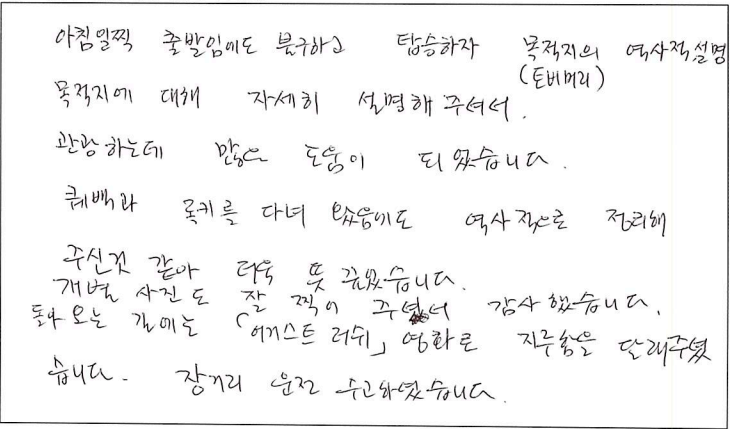 아침일찍 출발임에도 불구하고 탑승하자 목적지의 역사적설명
(토버머리)
목적지에 대해 자세히 설명해 주셔서.
관광하는데 많은 도움이 되었습니다.
퀘백과 록키를 다녀 왔음에도 역사적으로 정리해
주신것 같아 더욱 뜻 깊었습니다.
개별 사진도 잘 찍어 주셔서 감사했습니다.
돌아 오는 길에는 「어거스트 러쉬」 영화로 지루함을 달래주셨
습니다. 장거리 운전 수고하셨습니다.